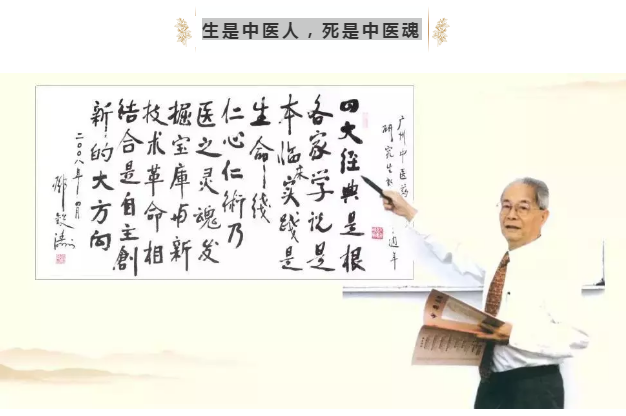 生是中医人，死是中医魂
广州中医药
研究生
四大经典是根
各家学说是
本临床实践是
生命綫
仁心仁術乃
医之灵魂发
掘宝庫与新
技术革命相
结合是自主創
新的大方向
二〇〇八年四月
鄧鐵濤